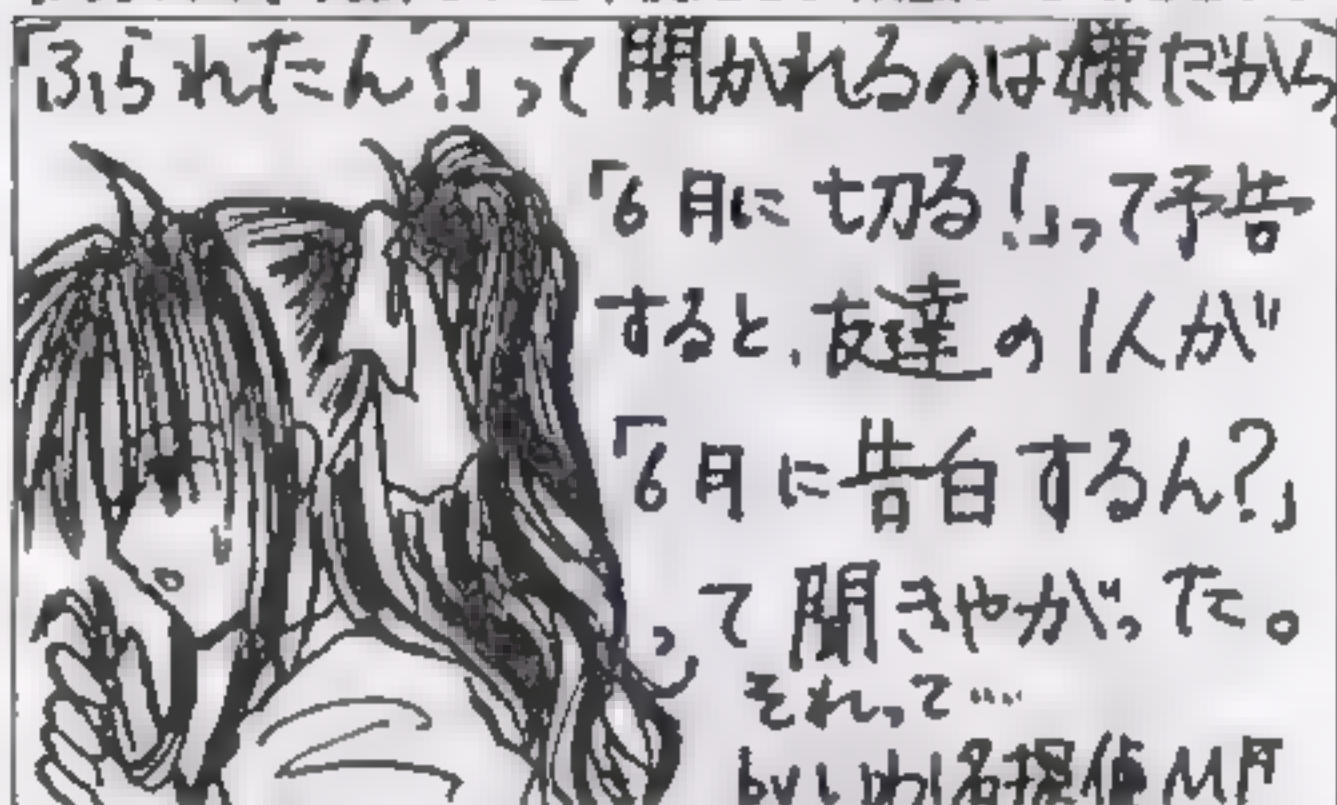 「ふられたん?」って聞かれるのは嫌だから、
「6月に切る!」って予告
すると、友達の1人が
「6月に告白するん?」
って聞きやがった。
それって…
by いわし名探偵